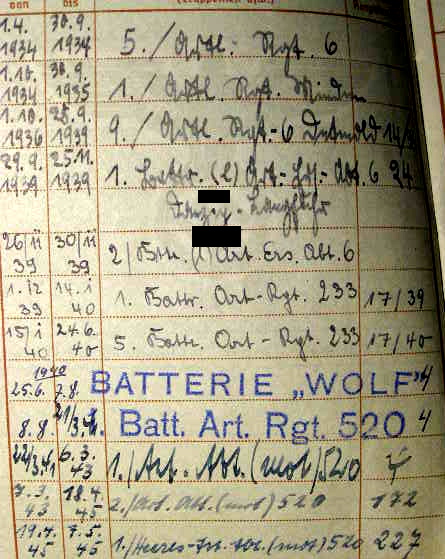 von bis
1.4. 30.9.
1934 1934 5./Artl. Rgt. 6
1.10. 30.9.
1934 1935 1./Artl. Rgt. Minden
1.10. 25.9.
1936 1939 9./Artl. Rgt.-6 Detmold 14/
29.9. 25.11.
1939 1939 1. Batter. (l) Art- - Abt. 6 24
Danzig-Langfuhr
26/11 30/11
39 39 2/Bttr. (l) Art. Ers. Abt. 6
1.12 14.1
39 40 1. Battr. Art-Rgt. 233 17/39
15/1 24.6.
40 40 5. Batt. Art-Rgt. 233 17/40
1940
25.6. 7.8. BATTERIE „WOLF" 4
8.8. Batt. Art. Rgt. 520 4
6.3.
43 1./Art. Abt. (mot) 520
7.3. 18.4.
43 45 2./Art. Abt. (mot) 520 172
19.4. 7.5.
45 45 1./Heeres-Art. Abt. (mot) 520 227